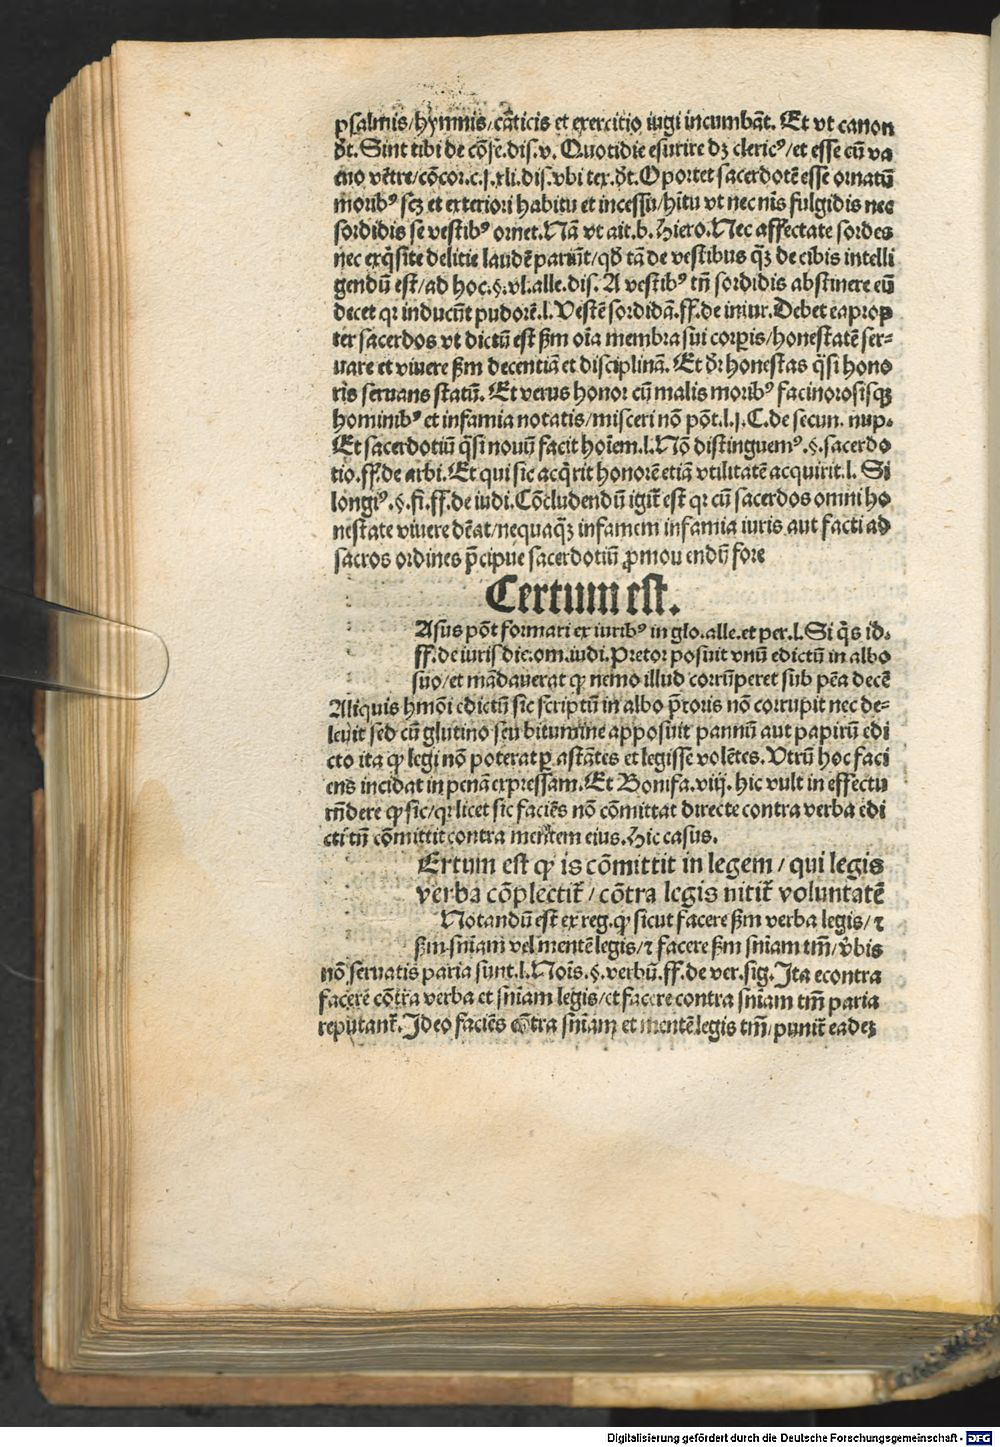 psalmis/hymnis/cãticis et exercitio iugi incumbãt. Et vt canon
dt. Sint tibi de cõse.dis.v. Quotidie esurire dꝫ clericꝰ/et esse cũ va
cuo vẽtre/cõcor.c.j.xli.dis.vbi tex.dt. Oportet sacerdotẽ esse ornatũ
moribꝰ scꝫ et exteriori habitu et incessu/hitu vt nec nis fulgidis nec
sordidis se vestibꝰ ornet. Nã vt ait.b.Hiero. Nec affectate sordes
nec exq̃site delitie laudẽ pariũt/qđ tã de vestibus q̃ꝫ de cibis intelli
gendũ est/ad hoc.§.vl.alle.dis. A vestibꝰ tñ sordidis abstinere eũ
decet qꝛ inducũt pudorẽ.l. Vestẽ sordidã.ff.de iniur. Debet eaprop
ter sacerdos vt dictũ est ẞm oĩa membra sui corpis/honestatẽ ser⸗
uare et viuere ẞm decentiã et disciplinã. Et dr̃ honestas q̃si hono
ris seruans statũ. Et verus honor cũ malis moribꝰ facinorosisqꝫ
hominibꝰ et infamia notatis/misceri nõ põt.l.j.C.de secun. nup.
Et sacerdotiũ q̃si nouũ facit hoĩem.l. Nõ distinguemꝰ.§.sacerdo
tio.ff.de arbi. Et qui sic acq̃rit honorẽ etiã vtilitatẽ acquirit.l. Si
longiꝰ.§.fi.ff.de iudi. Cõcludendũ igit̃ est qꝛ cũ sacerdos omni ho
nestate viuere dẽat/nequaq̃ꝫ infamem infamia iuris aut facti ad
sacros ordines p̃cipue sacerdotiũ ꝓmouendũ fore
Certum est.
Asus põt formari ex iuribꝰ in glo.alle.et per.l. Si q̃s id.
ff.de iurisdic.om.iudi. Pretor posuit vnũ edictũ in albo
suo/et mãdauerat ꝙ nemo illud corrũperet sub pẽa decẽ
Aliquis hmõi edictũ sic scriptũ in albo p̃toris nõ corrupit nec de⸗
leuit sed cũ glutino seu bitumine apposuit pannũ aut papirũ edi
cto ita ꝙ legi nõ poterat ꝑ astãtes et legisse volẽtes. Vtrũ hoc faci
ens incidat in penã expressam. Et Bonifa.viij. hic vult in effectu
rñdere ꝙ sic/qꝛ licet sic faciẽs nõ cõmittat directe contra verba edi
cti tñ cõmittit contra mentem eius. Hic casus.
Ertum est ꝙ is cõmittit in legem/qui legis
verba cõplectit̃/cõtra legis nitit̃ voluntatẽ
Notandũ est ex reg.ꝙ sicut facere ẞm verba legis/⁊
ẞm sniam vel mentẽ legis/⁊ facere ẞm sniam tm̃/ṽbis
nõ seruatis paria sunt.l. Nois.§.verbũ.ff.de ver.sig. Ita econtra
facere cõtra verba et sniam legis/et facere contra sniam tm̃ paria
reputant̃. Ideo faciẽs cõtra sniam et mentẽ legis tm̃/punit̃ eadeꝫ
Digitalisierung gefördert durch die Deutsche Forschungsgemeinschaft - DFG